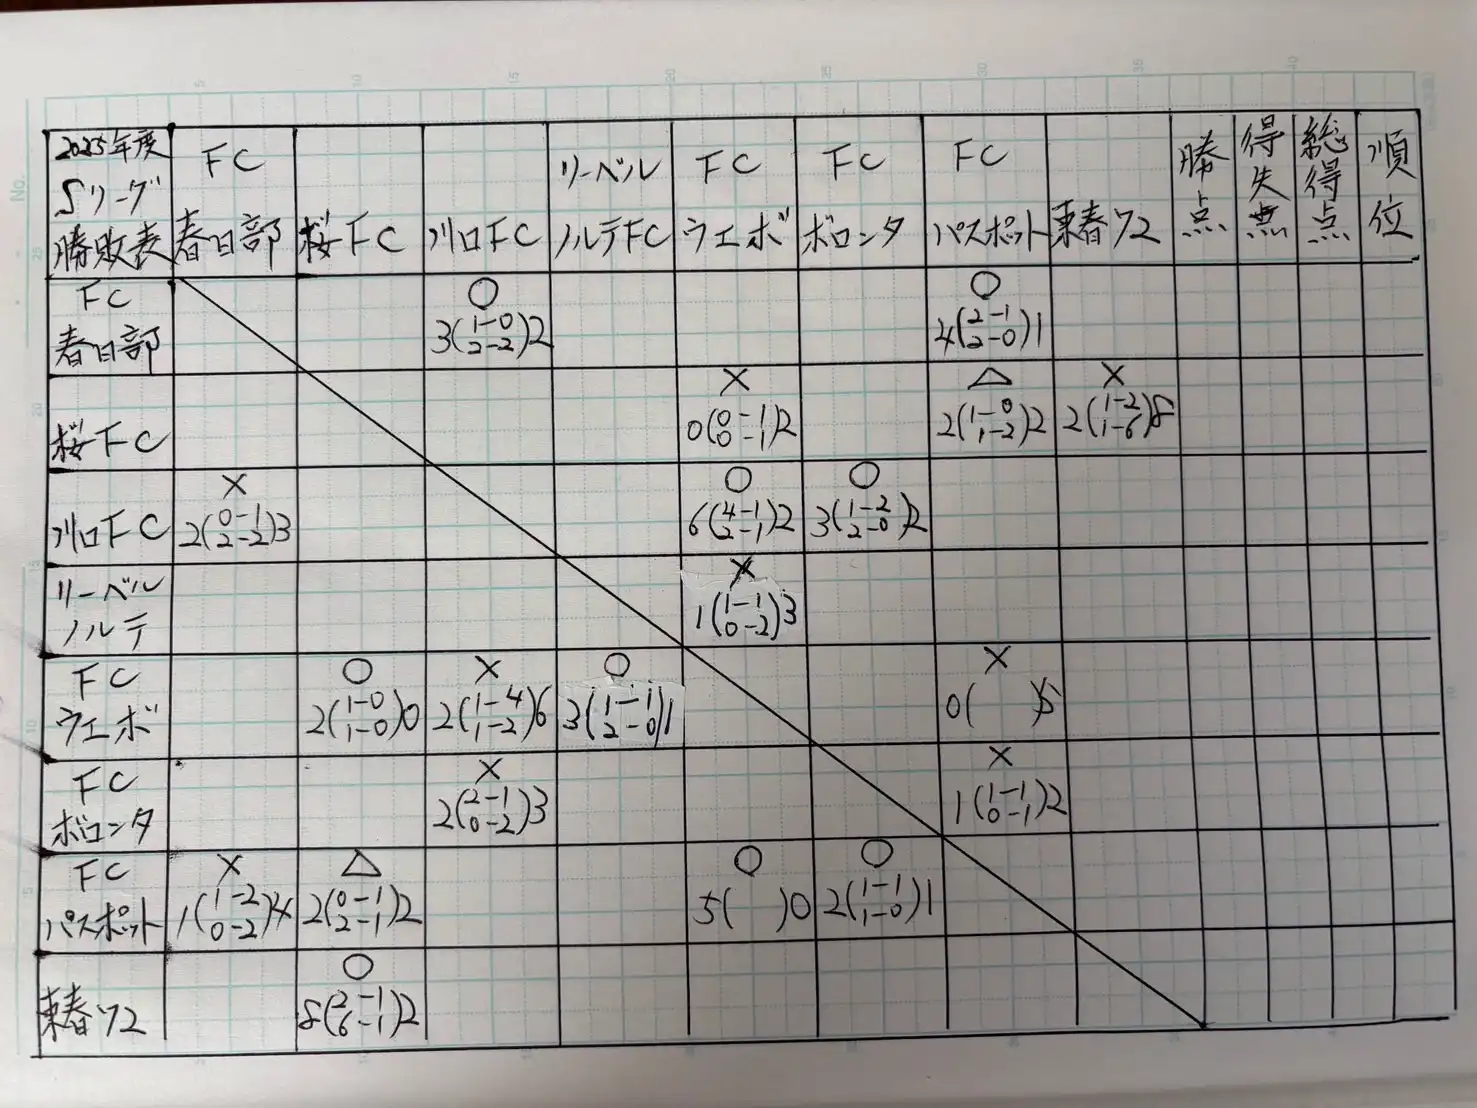 2025年度
Sリーグ
勝敗表
FC
春日部
桜FC
川口FC
リーベル
ノルテFC
FC
ウエボ
FC
ボロンタ
FC
パスポット
東春72
勝点
得失点
総得点
順位
FC
春日部
○
3(1-0
2-2)2
○
4(2-1
2-0)1
桜FC
×
0(0-1
0-1)2
△
2(1-0
1-2)2
×
2(1-2
1-6)8
川口FC
×
2(0-1
2-2)3
○
6(4-1
2-1)2
○
3(1-2
2-0)2
リーベル
ノルテ
×
1(1-1
0-2)3
FC
ウエボ
○
2(1-0
1-0)0
×
2(1-4
1-2)6
○
3(1-1
2-0)1
×
0( )5
FC
ボロンタ
×
2(2-1
0-2)3
×
1(1-1
0-1)2
FC
パスポット
×
1(1-2
0-2)4
△
2(0-1
2-1)2
○
5( )0
○
2(1-1
1-0)1
東春72
○
8(2-1
6-1)2
No.
5
10
15
20
25
30
35
40